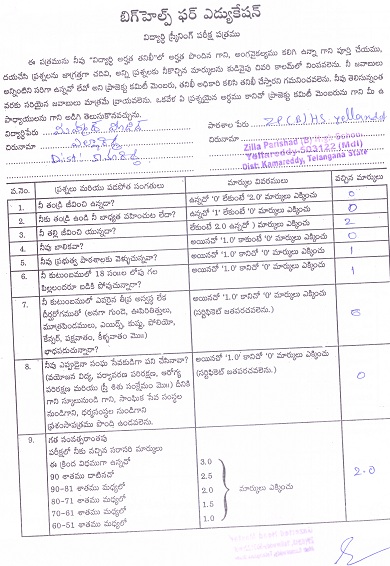 బిగ్‌హెల్ప్ ఫర్ ఎడ్యుకేషన్
విద్యార్థి స్క్రీనింగ్ పరీక్ష పత్రము
ఈ పత్రమును నీవు "విద్యార్థి అర్హత తనిఖీ"లో అర్హత పొందిన గాని, అంగవైకల్యము కలిగి ఉన్నా గాని పూర్తి చేయుము,
దయచేసి ప్రశ్నలను జాగ్రత్తగా చదివి, అన్ని ప్రశ్నలకు నీకొచ్చిన మార్కులను కుడివైపు చివరి కాలమ్‌లో నింపవలెను. నీ జవాబులు
అన్నింటిని సరిగా ఉన్నవో లేవో అని ప్రాజెక్టు కమిటీ మెంబరు, తనిఖీ అధికారి కలిసి తనిఖీ చేస్తారని గమనించవలెను. నీవు తెలిసినంత
వరకు సరియైన జవాబులు మాత్రమే వ్రాయవలెను. ఒకవేళ ఏ ప్రశ్నయైనా అర్థము కానిచో ప్రాజెక్టు కమిటీ మెంబరును గాని మీ ఉ
పాధ్యాయులను గాని అడిగి తెలుసుకొనవచ్చును.
విద్యార్థిపేరు
పాఠశాల పేరు : ZP(B)HS yellareddy
చిరునామా ఎల్లారెడ్డి
చిరునామా :
Zilla Parishad (B) High School
Yellareddy-503122 (Mdl)
Dist. Kamareddy, Telangana State
Dist: కామారెడ్డి
వ.నెం. ప్రశ్నలు మరియు పదపోత సంగతులు మార్కుల వివరములు వచ్చిన మార్కులు
1. నీ తండ్రి జీవించి ఉన్నడా? ఉన్నచో '0' లేకుంటే '2.0' మార్కులు ఎక్కించు 0
2. నీకు తండ్రి ఉండి నీ బాధ్యత వహించుట లేదా? ఉన్నచో '1' లేకుంటే '0' మార్కులు ఎక్కించు 0
3. నీ తల్లి జీవించి యున్నదా? లేకుంటే 2.0 ఉన్నచో ) మార్కులు ఎక్కించు 2
4. నీవు బాలికవా? అయినచో '1.0' కాకుంటే '0' మార్కులు ఎక్కించు 0
5. నీవు ప్రభుత్వ పాఠశాలకు వెళ్ళుచున్నావా? అయినచో '1.0' కానిచో '0' మార్కులు ఎక్కించు 1
6. నీ కుటుంబములో 18 సం॥ల లోపు గల
పిల్లలందరూ బడికి పోవుచున్నారా? అయినచో '1.0' కానిచో '0' మార్కులు ఎక్కించు 1
7. నీ కుటుంబములో ఎవరైన తీవ్ర అస్వస్థ లేక
దీర్ఘరోగముతో (అనగా గుండె, ఊపిరితిత్తులు,
మూత్రపిండములు, ఎయిడ్స్, కుష్ఠు, పోలియో,
కేన్సర్, పక్షవాతం, కీళ్ళవాతం మొ॥)
బాధపడుచున్నారా?
అయినచో '1.0' కానిచో '0' మార్కులు ఎక్కించు
(సర్టిఫికెట్ జతపరచవలెను.)
8. నీవు ఎప్పుడైనా సంఘ సేవకుడిగా పని చేసినావా?
(వయోజన విద్య, పర్యావరణ పరిరక్షణ, ఆరోగ్య
పరిరక్షణ మరియు స్త్రీ శిశు సంక్షేమం మొ॥) దీనికి
గాని స్కూలునుండి గాని, సాంఘిక సేవ సంస్థల
నుండిగాని, ధర్మసంస్థల నుండిగాని
ప్రశంసాపత్రము పొంది ఉండవలెను.
అయినచో '1.0' కానిచో '0' మార్కులు ఎక్కించు
(సర్టిఫికెట్ జతపరచవలెను.) 0
9. గత సంవత్సరాంతపు
పరీక్షలో నీకు వచ్చిన సరాసరి మార్కులు
ఈ క్రింద విధముగా ఉన్నచో 3.0
90 శాతము దాటినచో 2.5
90-81 శాతము మధ్యలో 2.0 మార్కులు ఎక్కించు 2.0
80-71 శాతము మధ్యలో 1.5
70-61 శాతము మధ్యలో 1.0
60-51 శాతము మధ్యలో